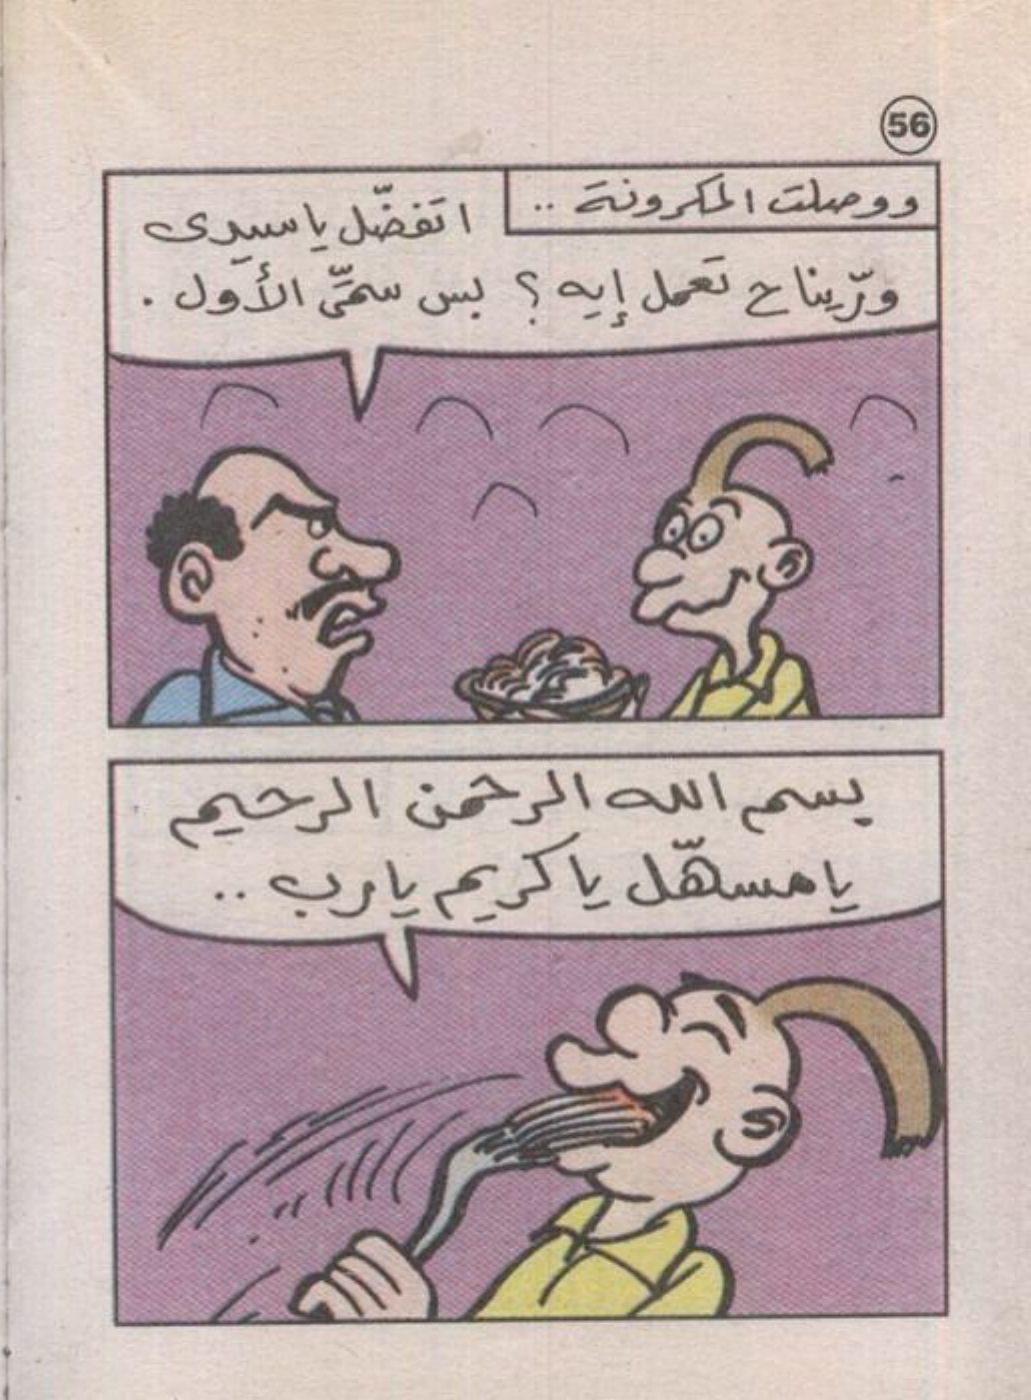 56
ووصلت المكرونة ..
اتفضّل ياسيدى
ورّيناح تعمل إيه ؟ بس سمّى الأول .
بسم الله الرحمن الرحيم
يامسهّل ياكريم يارب ..